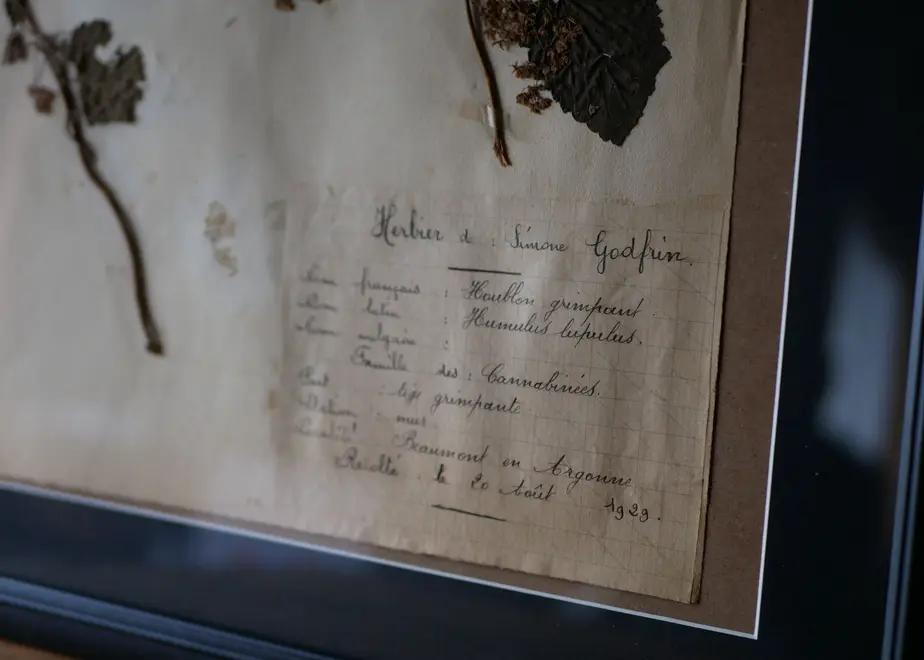 Herbier de : Simone Godfrin.
Nom français : Houblon grimpant.
Nom latin : Humulus lupulus.
Nom vulgaire :
Famille des : Cannabinées.
Port : tige grimpante
Station : mur
Localité : Beaumont en Argonne
Récolté le 20 Août 1929.